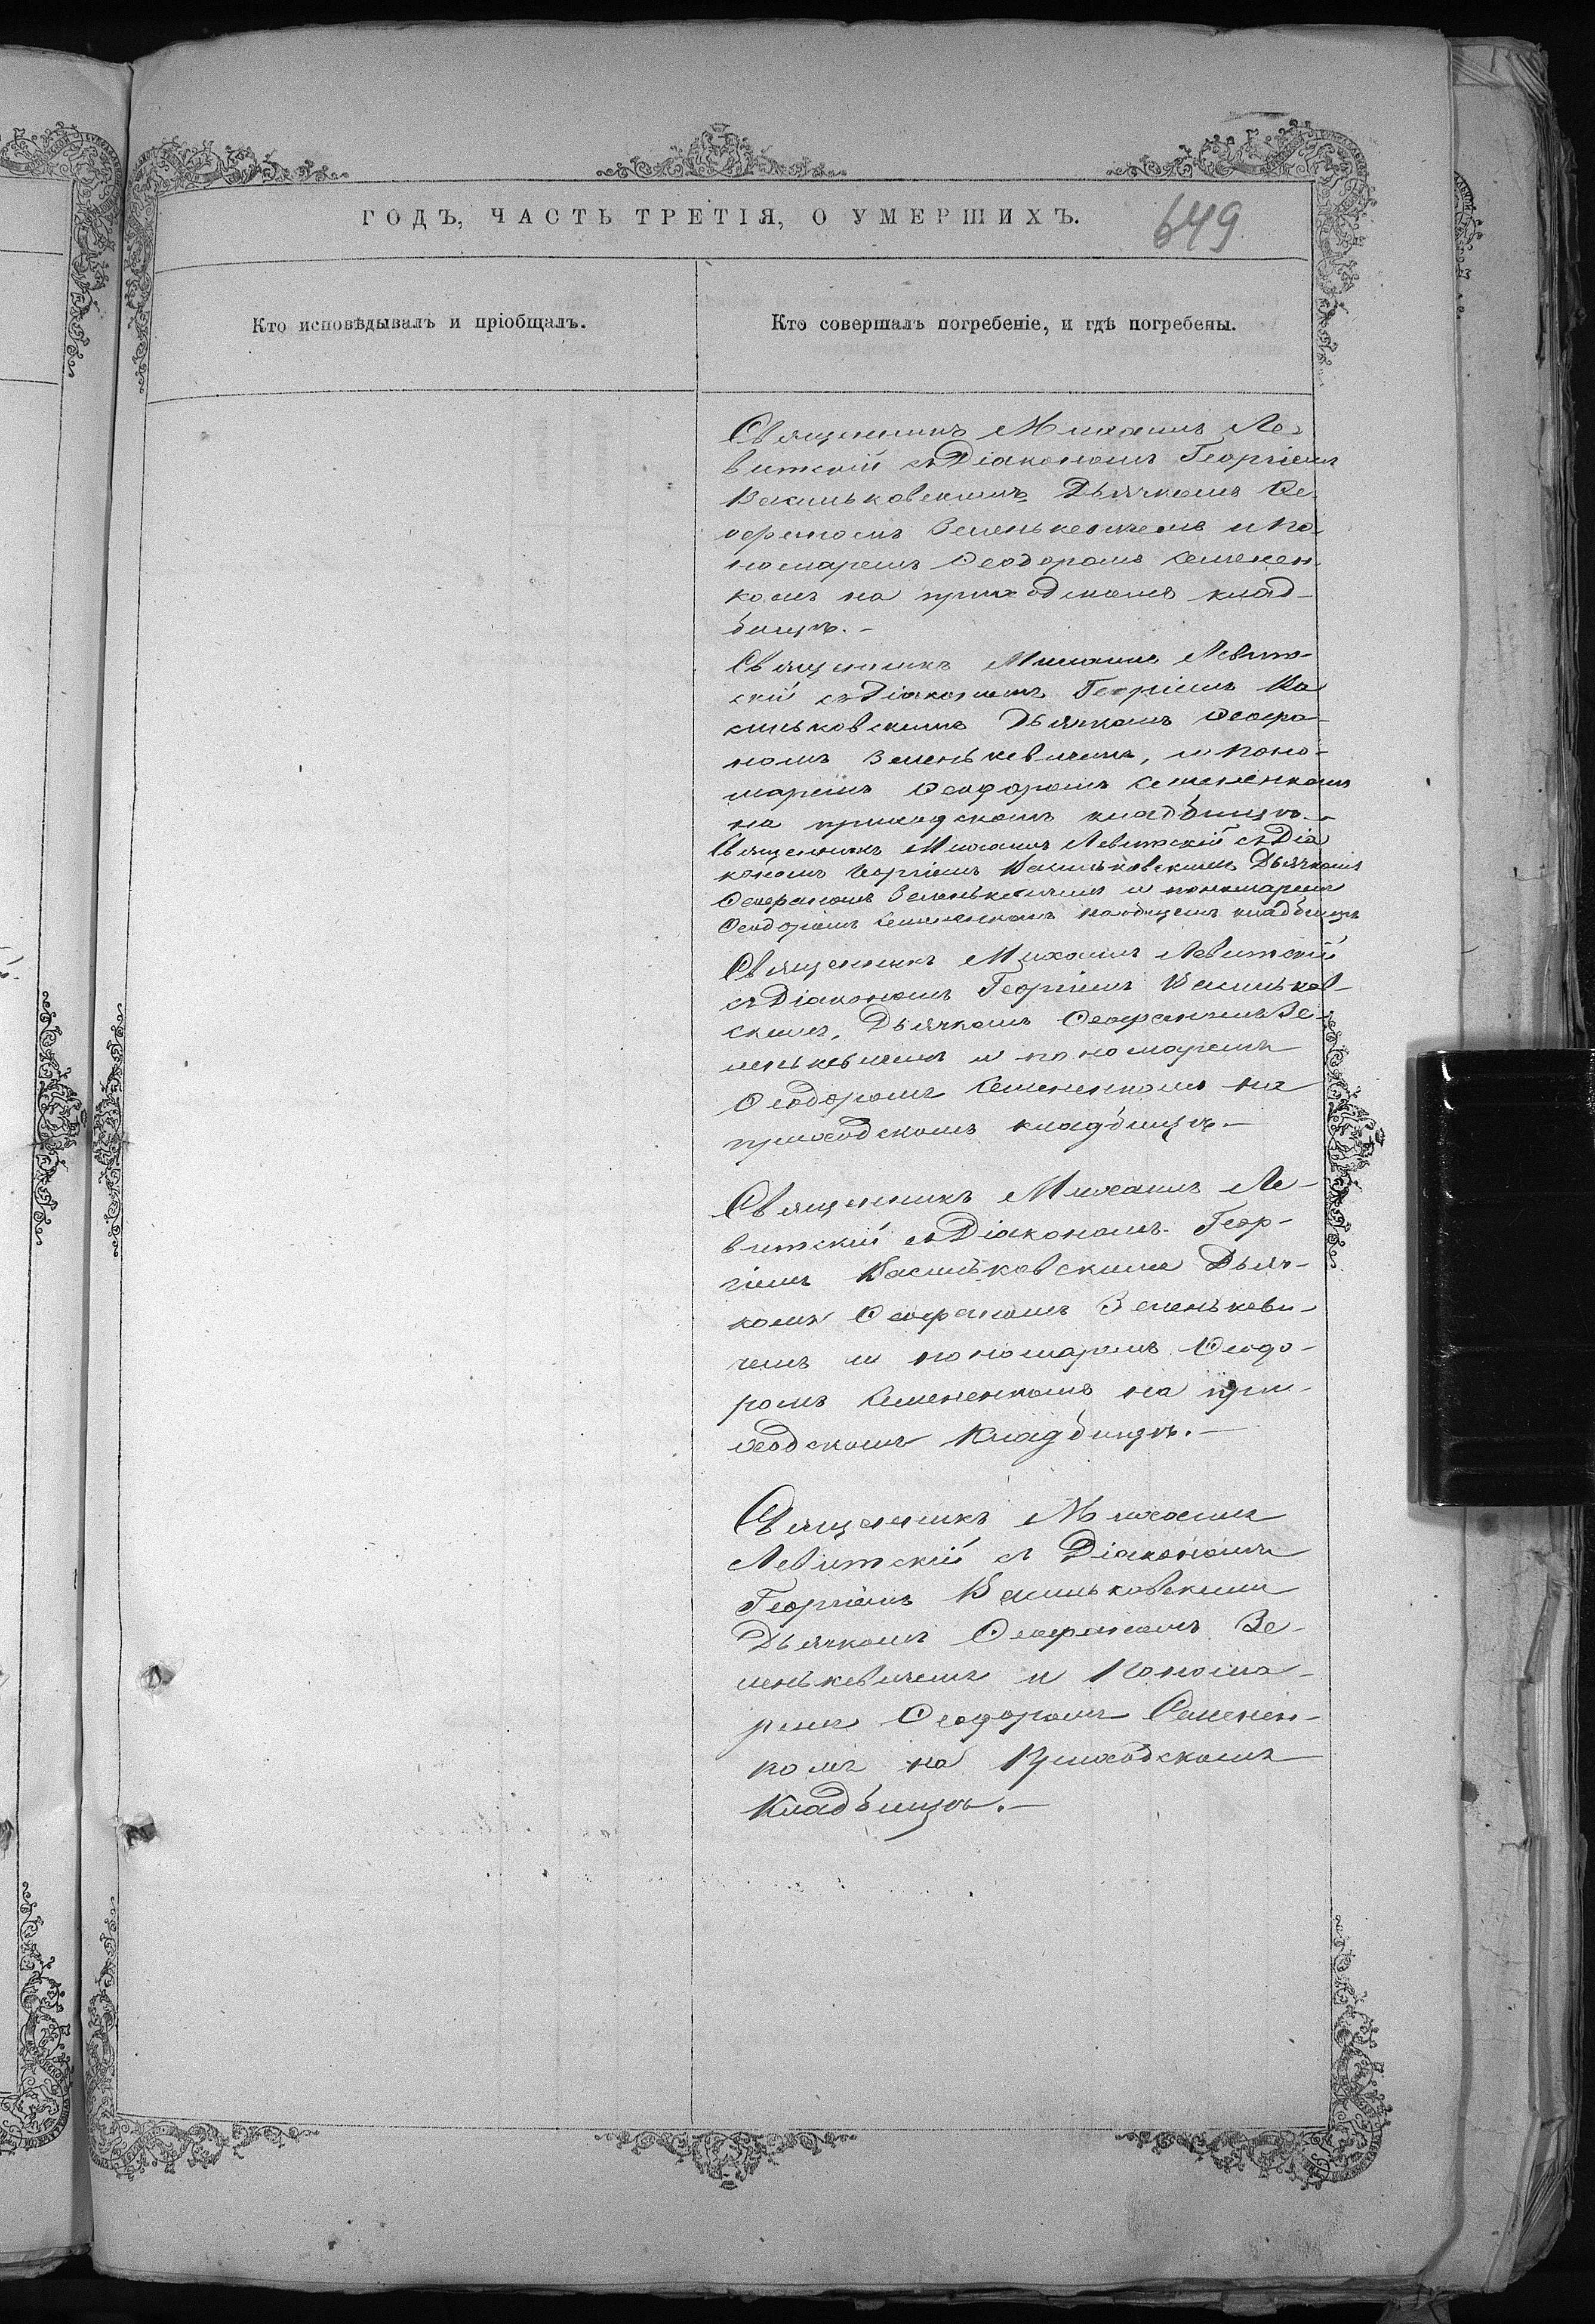 ГОДЪ, ЧАСТЬ ТРЕТІЯ, О УМЕРШИХЪ.
649
Кто исповѣдывалъ и пріобщалъ.
Кто совершалъ погребеніе, и гдѣ погребены.
Священникъ Михаилъ Ле-
витскій съ Діакономъ Георгіемъ
Васильковскимъ Дьячкомъ Ѳе-
офаномъ Зеленькевичемъ и по-
номаремъ Ѳеодоромъ Семенен-
комъ на приходскомъ клад-
бищѣ.-
Священникъ Михаилъ Левит-
скій съ Діакономъ Георгіемъ Ва
сильковскимъ Дьячкомъ Ѳеофа-
номъ Зеленькевичемъ, и поно-
маремъ Ѳеодоромъ Семененкомъ
на приходскомъ кладбищѣ.-
Священникъ Михаилъ Левитскій съ Діа
кономъ Георгіемъ Васильковскимъ Дьячкомъ
Ѳеофаномъ Зеленькевичемъ и пономаремъ
Ѳеодоромъ Семененкомъ на общемъ кладбищѣ
Священникъ Михаилъ Левитскій
съ Діакономъ Георгіемъ Васильков-
скимъ, Дьячкомъ Ѳеофаномъ Зе-
ленькевичемъ и пономаремъ
Ѳеодоромъ Семененкомъ на
приходскомъ кладбищѣ.-
Священникъ Михаилъ Ле-
витскій съ Діакономъ Геор-
гіемъ Васильковскимъ Дьяч-
комъ Ѳеофаномъ Зеленькеви-
чемъ и пономаремъ Ѳеодо-
ромъ Семененкомъ на при-
ходскомъ Кладбищѣ.-
Священникъ Михаилъ
Левитскій съ Діакономъ
Георгіемъ Васильковскимъ
Дьячкомъ Ѳеофаномъ Зе-
ленькевичемъ и Понома-
ремъ Ѳеодоромъ Семенен-
комъ на Приходскомъ
Кладбищѣ.-